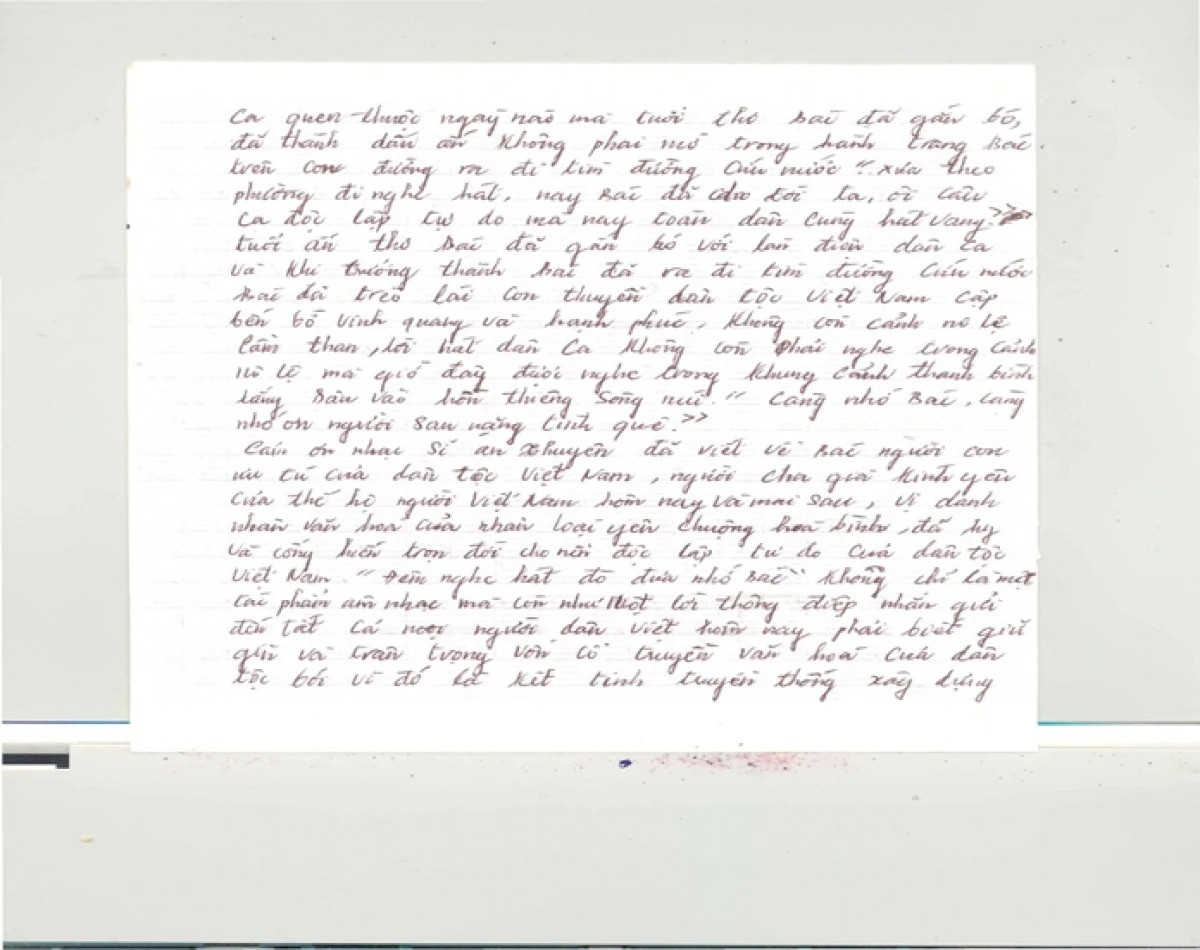 ca quen thuộc ngày nào mà tuổi thơ Bác đã gắn bó,
đã thành dấu ấn không phai mờ trong hành trang Bác
trên con đường ra đi tìm đường cứu nước " xưa theo
phường đi nghe hát, nay Bác đã cho đời ta, ôi câu
ca độc lập tự do mà nay toàn dân cùng hát vang."
tuổi ấu thơ Bác đã gắn bó với làn điệu dân ca
và khi trưởng thành Bác đã ra đi tìm đường cứu nước
Bác đã trèo lái con thuyền dân tộc Việt Nam cập
bến bờ vinh quang và hạnh phúc, không còn cảnh nô lệ
lầm than, lời hát dân ca không còn phải nghe trong cảnh
nô lệ mà giờ đây được nghe trong khung cảnh thanh bình
lắng sâu vào hồn thiêng sông núi. " Càng nhớ Bác, càng
nhớ ơn người sâu nặng tình quê. "
Cảm ơn nhạc sĩ an Thuyên đã viết về Bác người con
ưu tú của dân tộc Việt Nam, người cha già kính yêu
của thế hệ người Việt Nam hôm nay và mai sau, vị danh
nhân văn hoá của nhân loại yêu chuộng hoà bình, đã hy
và cống hiến trọn đời cho nền độc lập tự do của dân tộc
Việt Nam. " Đêm nghe hát đò đưa nhớ Bác " không chỉ là một
tác phẩm âm nhạc mà còn như một lời thông điệp nhắn gửi
đến tất cả mọi người dân Việt hôm nay phải biết giữ
gìn và trân trọng vốn cổ truyền văn hoá của dân
tộc bởi vì đó là kết tinh truyền thống xây dựng